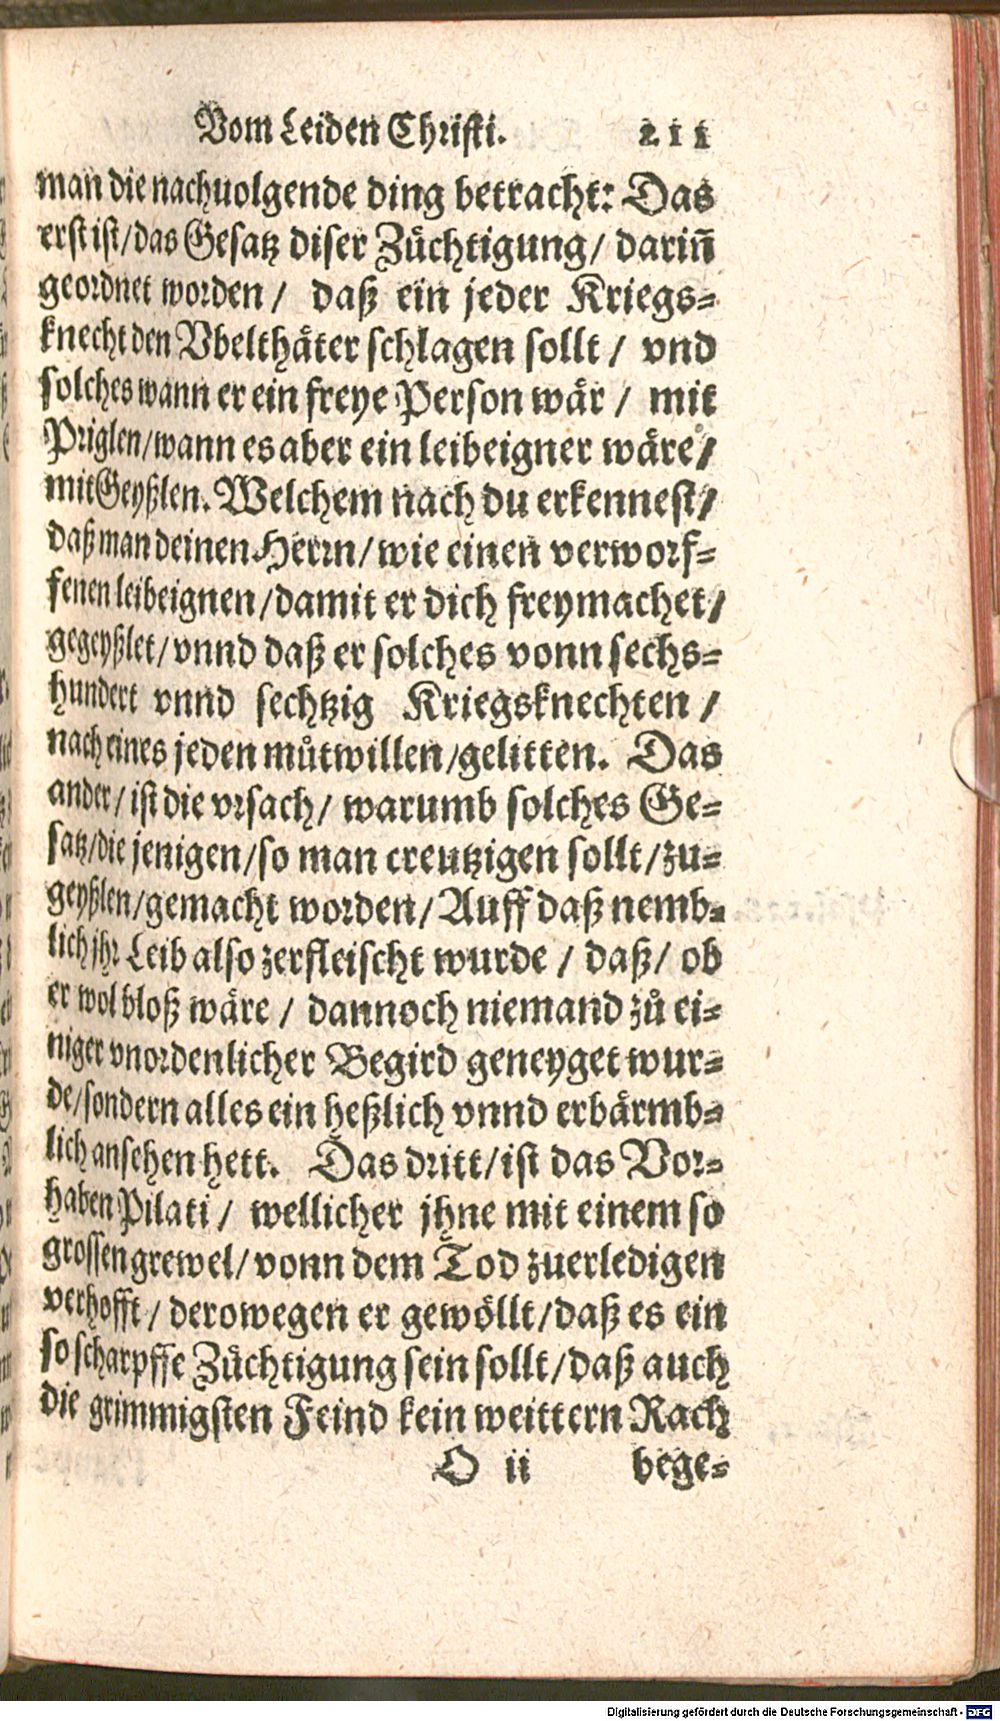 Vom Leiden Christi. 211
man die nachuolgende ding betracht: Das
erst ist/das Gesatz diser Züchtigung/ dariñ
geordnet worden/ daß ein jeder Kriegs-
knecht den Vbelthäter schlagen sollt/ vnd
solches wann er ein freye Person wär/ mit
Priglen/wann es aber ein leibeigner wäre/
mit Geyßlen. Welchem nach du erkennest/
daß man deinen Herrn/wie einen verworf-
fenen leibeignen/damit er dich freymachet/
gegeyßlet/vnnd daß er solches vonn sechs-
hundert vnnd sechtzig Kriegsknechten/
nach eines jeden můtwillen/gelitten. Das
ander/ist die vrsach/ warumb solches Ge-
satz/die jenigen/so man creutzigen sollt/zu-
geyßlen/gemacht worden/Auff daß nemb-
lich jhr Leib also zerfleischt wurde/ daß/ ob
er wol bloß wäre/ dannoch niemand zů ei-
niger vnordenlicher Begird geneyget wur-
de/sondern alles ein heßlich vnnd erbärmb-
lich ansehen hett. Das dritt/ist das Vor-
haben Pilati/ wellicher jhne mit einem so
grossen grewel/vonn dem Tod zuerledigen
verhofft/ derowegen er gewöllt/daß es ein
so scharpffe Züchtigung sein sollt/daß auch
die grimmigsten Feind kein weittern Rach
O ii bege-
Digitalisierung gefördert durch die Deutsche Forschungsgemeinschaft - DFG